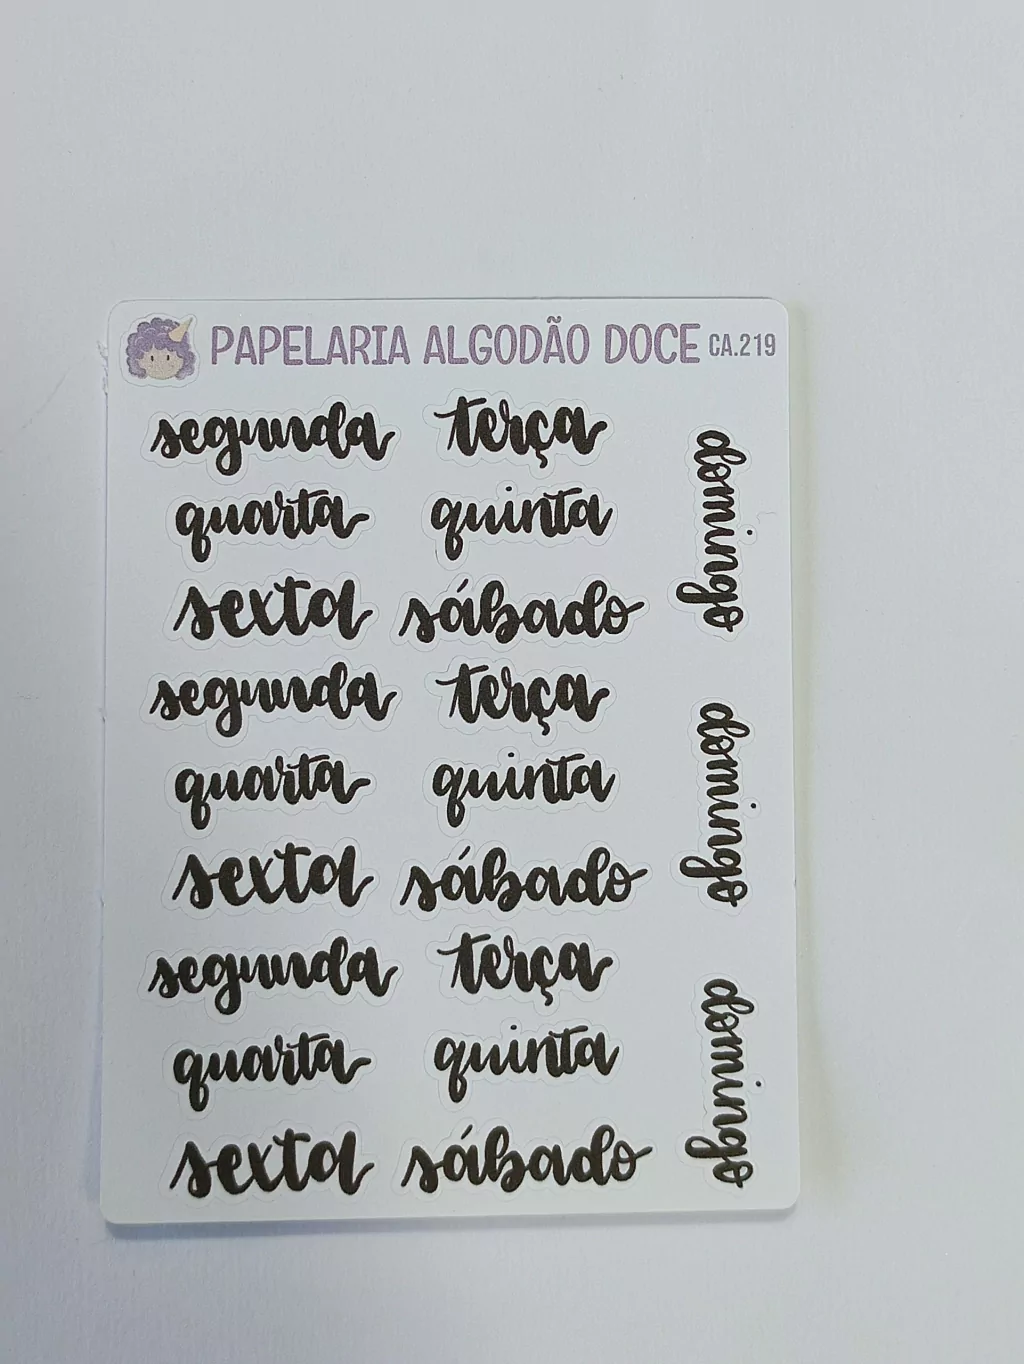 PAPELARIA ALGODÃO DOCE CA.219
segunda terça
quarta quinta
sexta sábado
domingo
segunda terça
quarta quinta
sexta sábado
domingo
segunda terça
quarta quinta
sexta sábado
domingo